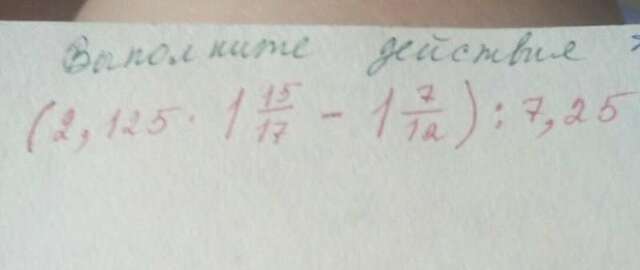 Выполните действия
(2,125 · 1 15/17 - 1 7/12) : 7,25